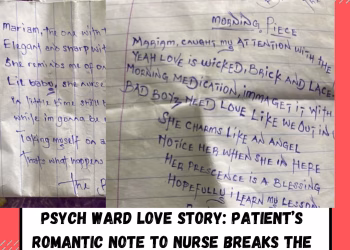 Mariam, the one with t
Elegant and sharp wit
She reminds me of o
Lil baby, she nurse
in little time still b
while im gonna be
taking myself on a
thats what happens
the
MORNING PIECE
MARIAM, CAUGHT MY ATTENTION WITH THE
YEAH LOVE IS WICKED, BRICK AND LACE
MORNING MEDICATION, IMMA GET IT WITH
BAD BOYZ NEED LOVE LIKE WE OUT IN
SHE CHARMS LIKE AN ANGEL
NOTICE HER WHEN SHE IN HERE
HER PRESCENCE IS A BLESSING
HOPEFULLY I LEARN MY LESSON
PSYCH WARD LOVE STORY: PATIENT'S
ROMANTIC NOTE TO NURSE BREAKS THE